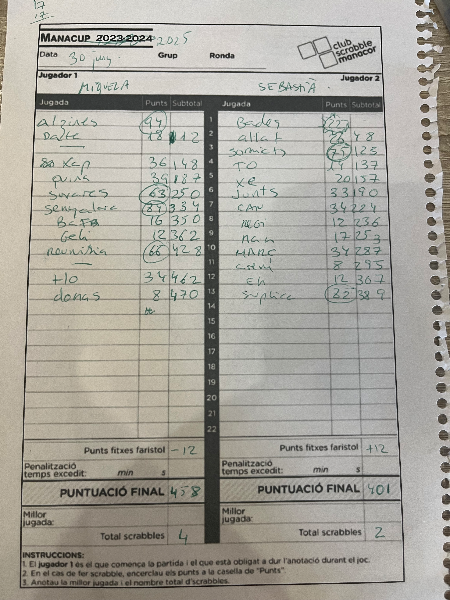 MANACUP 2023-2024 2025
club scrabble manacor
Data 30 juny Grup Ronda
Jugador 1 Jugador 2
MIQUELA SEBASTIÀ
Jugada Punts Subtotal Jugada Punts Subtotal
alzines 94 1 Bades 22
18 112 2 allat 26 48
— 3 125
Xap 36 148 4 TO 12 137
quins 39 187 5 xe 20 157
63 250 6 Junts 33 190
senyalava 84 334 7 CAN 34 224
BAFA 16 350 8 12 236
Geli 12 362 9 nan 17 253
66 428 10 MARC 34 287
— 11 8 295
tlo 34 462 12 EH 12 307
donas 8 470 13 suplica 82 389
14
15
16
17
18
19
20
21
22
Punts fitxes faristol -12 Punts fitxes faristol +12
Penalització temps excedit: min s Penalització temps excedit: min s
PUNTUACIÓ FINAL 458 PUNTUACIÓ FINAL 401
Millor jugada: Millor jugada:
Total scrabbles 4 Total scrabbles 2
INSTRUCCIONS:
1. El jugador 1 és el que comença la partida i el que està obligat a dur l'anotació durant el joc.
2. En el cas de fer scrabble, encerclau els punts a la casella de "Punts".
3. Anotau la millor jugada i el nombre total d'scrabbles.